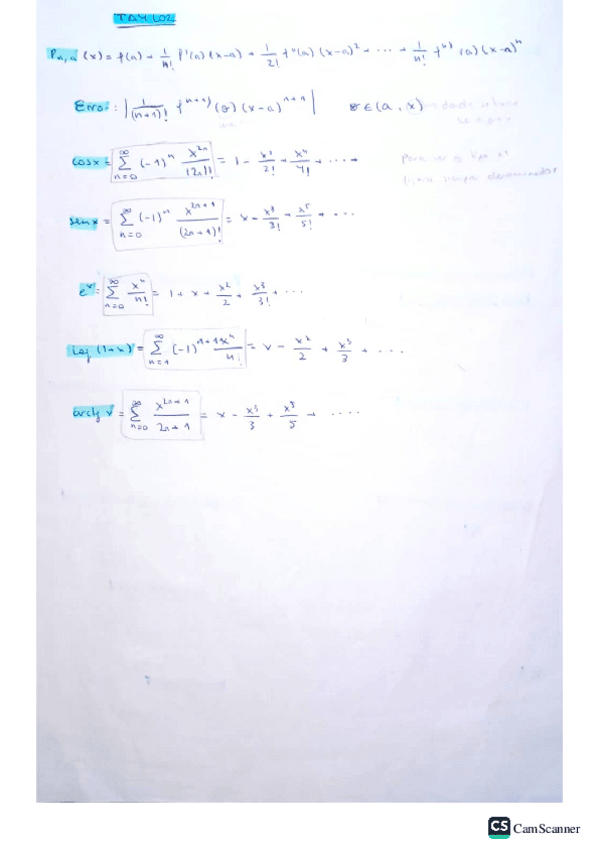 TAYLOR
P_{n,a}(x) = f(a) + \frac{1}{1!} f'(a)(x-a) + \frac{1}{2!} f''(a)(x-a)^2 + ... + \frac{1}{n!} f^{n)}(a)(x-a)^n
Error: |\frac{1}{(n+1)!} f^{n+1)}(θ)(x-a)^{n+1}| θ∈(a,x)
cosx = \sum_{n=0}^{∞} (-1)^n \frac{x^{2n}}{(2n)!} = 1 - \frac{x^2}{2!} + \frac{x^4}{4!} + ...
senx = \sum_{n=0}^{∞} (-1)^n \frac{x^{2n+1}}{(2n+1)!} = x - \frac{x^3}{3!} + \frac{x^5}{5!} + ...
e^x = \sum_{n=0}^{∞} \frac{x^n}{n!} = 1 + x + \frac{x^2}{2} + \frac{x^3}{3!} + ...
Log(1+x) = \sum_{n=1}^{∞} (-1)^{n+1} \frac{x^n}{n!} = x - \frac{x^2}{2} + \frac{x^3}{3} + ...
arctg x = \sum_{n=0}^{∞} \frac{x^{2n+1}}{2n+1} = x - \frac{x^3}{3} + \frac{x^5}{5} + ....
CS CamScanner